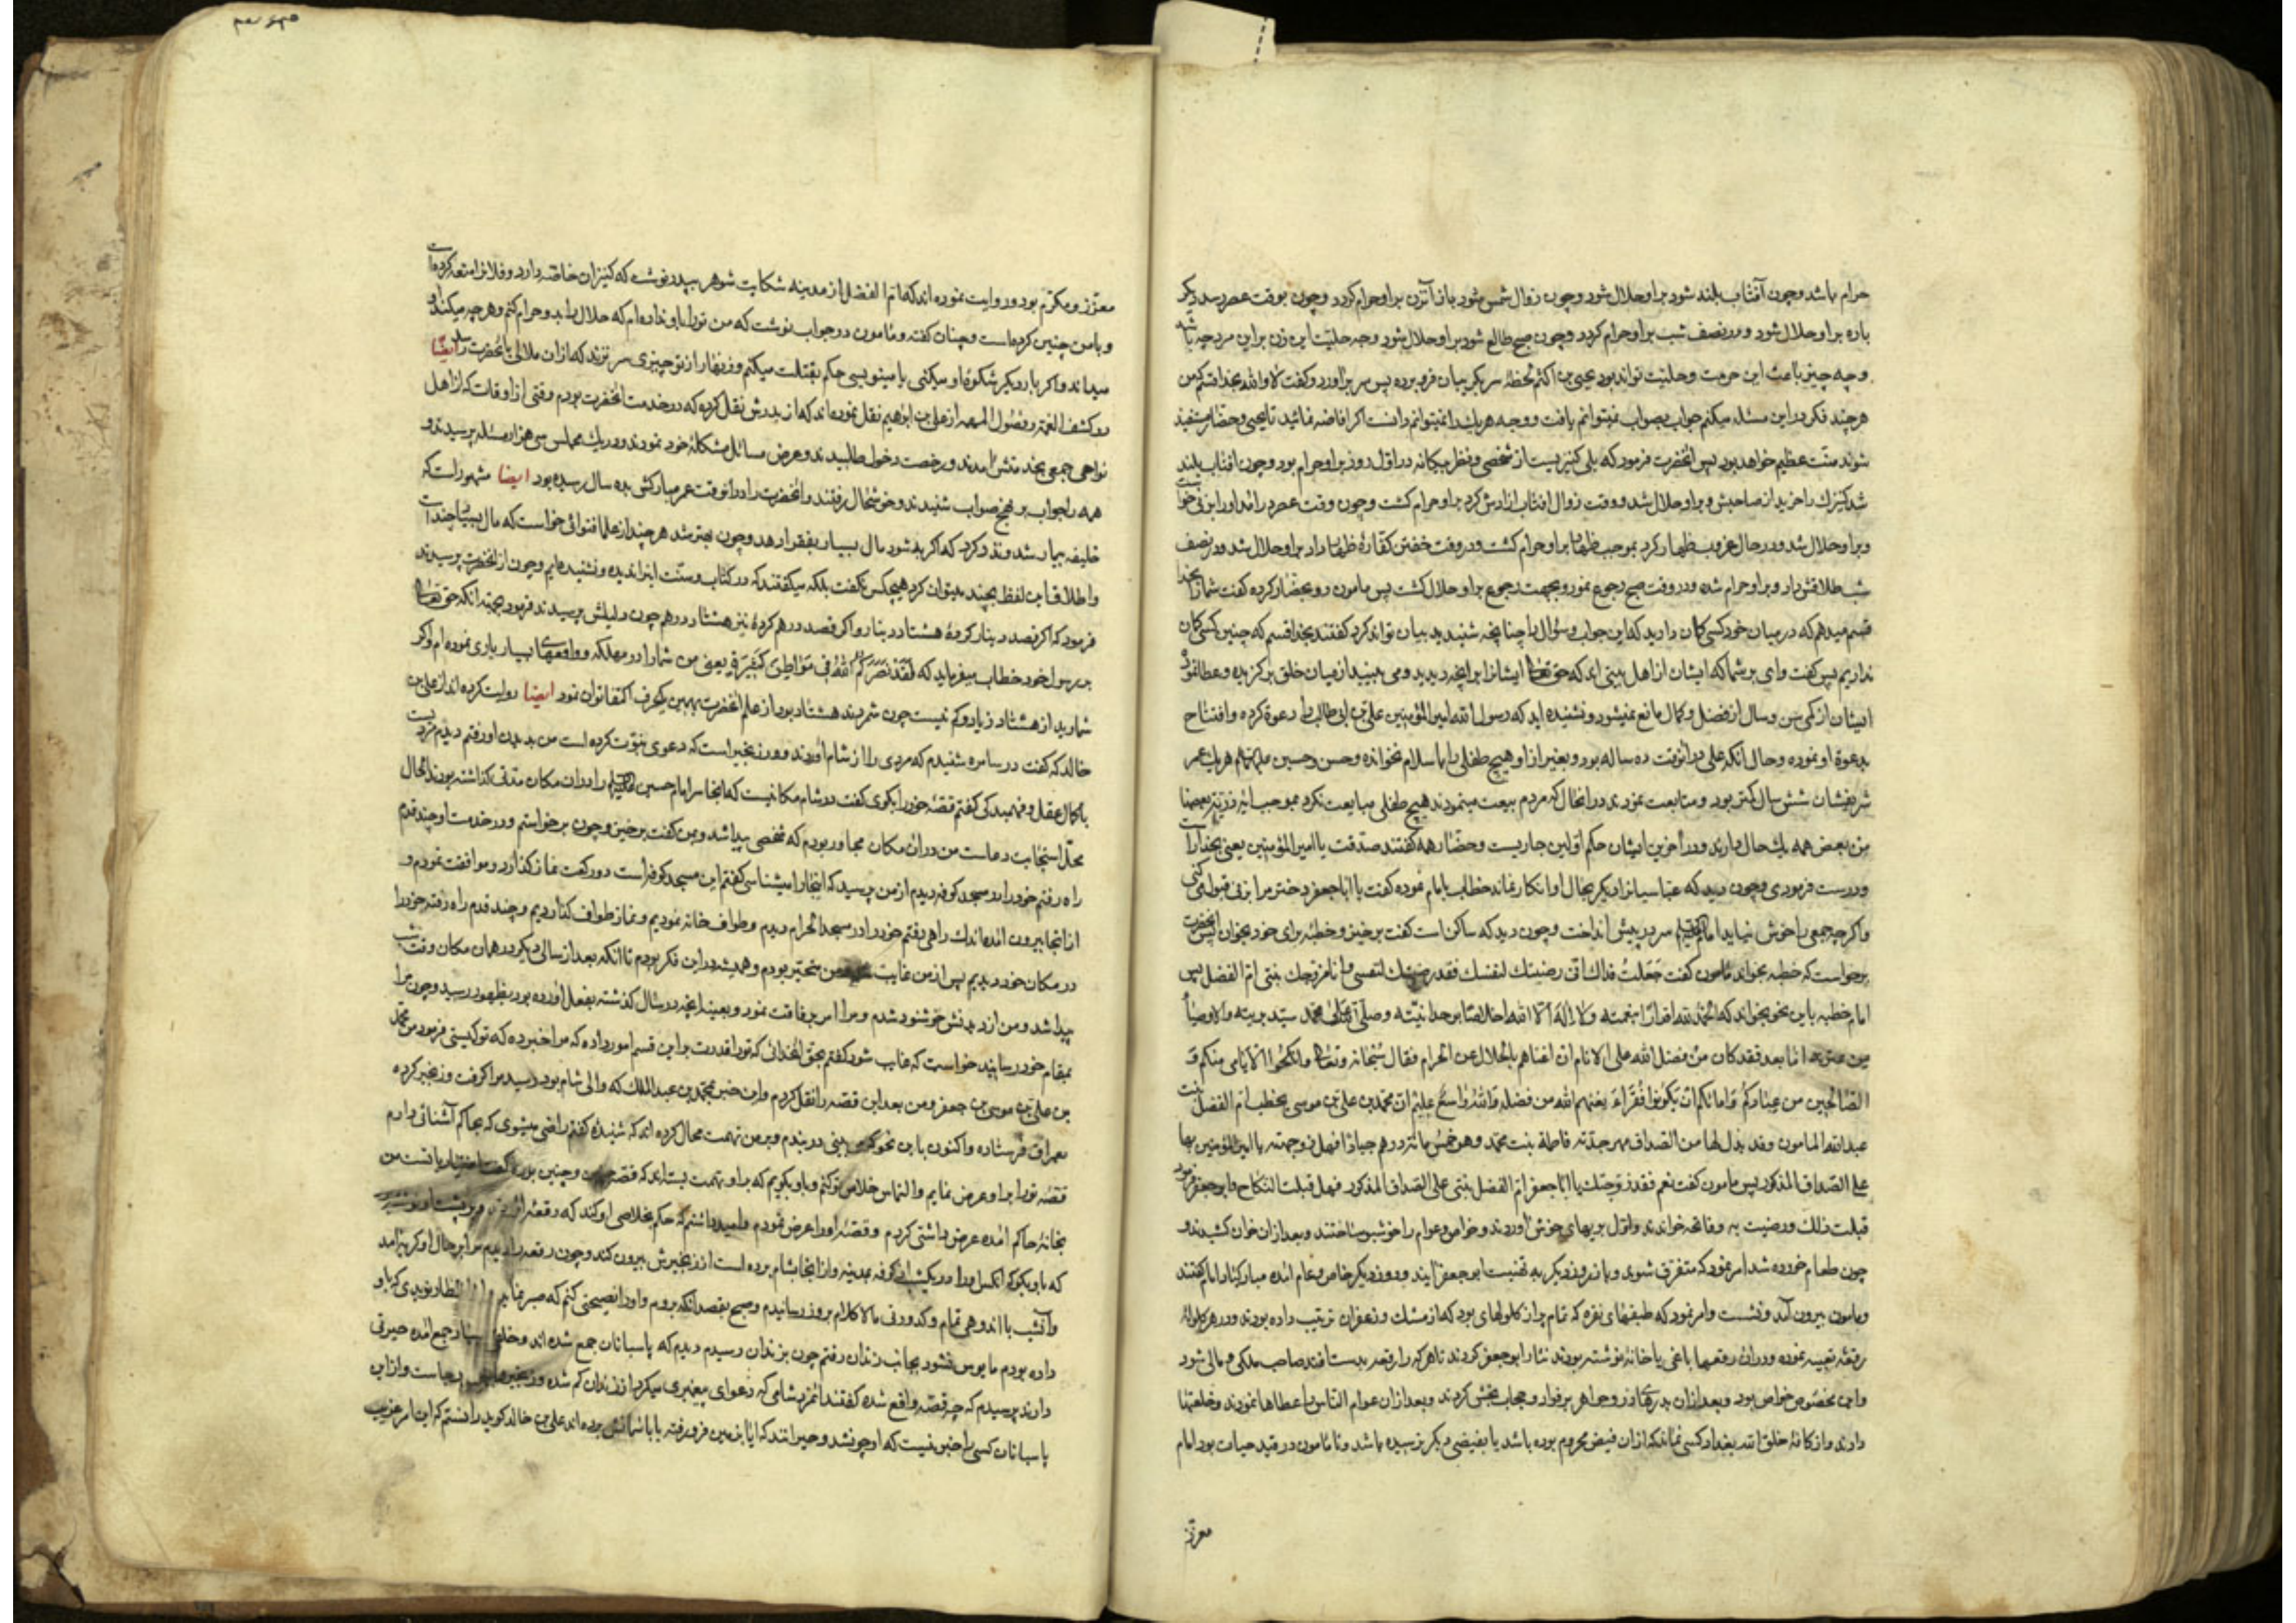 حرام باشد وچون آفتاب بلند شود براو حلال شود وچون زوال شمس شود باز آنزن براو حرام کردد وچون بوقت عصر رسد دیکر
باره براو حلال شود ودر نصف شب براو حرام کردد وچون صبح طالع شود براو حلال شود وجه حلیت این زن براین مرد چه باشد
وچه چیز باعث این حرمت وحلیت تواند بود یحیی بن اکثم لحظهٔ سر بکریبان فرو برده پس سر براورد وکفت لا والله بخدا قسم که من
هرچند فکر دراین مسئله میکنم جواب بصواب نمیتوانم یافت ووجه هریک را نمیتوانم دانست اکر افاضه فرمائید تا یحیی وحضار مستفید
شوند منت عظیم خواهد بود پس انحضرت فرمود که بلی کنیزیست از شخصی ونظر بیکانه در اول روز براو حرام بود وچون افتاب بلند
شد کنیزک را خرید از صاحبش وبراو حلال شد ووقت زوال افتاب ازادش کرد براو حرام کشت وچون وقت عصر درامد اورا بزنی خواست
وبراو حلال شد ودر حال غروب ظهار کرد بموجب ظهار براو حرام کشت ودر وقت خفتن کفارهٔ ظهار داد براو حلال شد ودر نصف
شب طلاقش داد وبراو حرام شد ودر وقت صبح رجوع نمود وبجهت رجوع براو حلال کشت پس مامون رو بحضار کرده کفت شمارا بخدا
قسم میدهم که در میان خود کسی کمان دارید که این جواب وسؤال را چنانچه شنیدید بیان تواند کرد کفتند بخدا قسم که چنین کسی کمان
نداریم پس کفت وای بر شما که ایشان از اهل بیتی اند که حق تعالی ایشانرا برانچه دیدید ومی بینید از میان خلق برکزیده وعطا نموده
ایشان از کمی سن وسال از فضل وکمال مانع نمیشود ونشنیده اید که رسول الله امیر المؤمنین علی بن ابی طالب را دعوة کرده وافتتاح
بدعوة او نموده وحال انکه علی درانوقت ده ساله بود وبغیر از او هیچ طفلی را باسلام نخوانده وحسن وحسین علیهما السلام هریک عمر
شریفشان شش سال کمتر بود ومتابعت نمودند درانحال که مردم بیعت مینمودند هیچ طفلی مبایعت نکرد بموجب ایه ذریة بعضها
من بعض همه یک حال دارند ودر اخرین ایشان حکم اولین جاریست وحضار همه کفتند صدقت یا امیر المؤمنین یعنی بخدا راست
ودرست فرمودی وچون دید که عباسیانرا دیکر مجال او انکار نماند خطاب بامام نموده کفت یا اباجعفر دختر مرا بزنی قبول می کنی
واکرچه جمعی را خوش نیاید امام علیه السلم سر در پیش انداخت وچون دید که ساکن است کفت برخیز وخطبهٔ برای خود بخوان پس انحضرت
برخواست که خطبه بخواند مامون کفت جعلت فداک اتی رضیتک لنفسک فقد رضیتک لنفسی وانا مزوجک بنتی ام الفضل پس
امام خطبه باین نحو بخواند که الحمد لله اقرارا بنعمته ولا اله الا الله اخلاصا بوحدانیته وصلی الله علی محمد سید بریته والاوصیاء
من عترته اما بعد فقد کان من فضل الله علی الانام ان اغناهم بالحلال عن الحرام فقال سبحانه وتعالی وانکحوا الایامی منکم و
الصالحین من عبادکم وامائکم ان یکونوا فقراء یغنهم الله من فضله والله واسع علیم ان محمد بن علی بن موسی یخطب ام الفضل بنت
عبدالله المامون وقد بذل لها من الصداق مهر جدته فاطمة بنت محمد وهو خمس مائة درهم جیادا فهل زوجته یا امیر المؤمنین بها
علی الصداق المذکور پس مامون کفت نعم فقد زوجتک یا اباجعفر ام الفضل بنتی علی الصداق المذکور فهل قبلت النکاح فابوجعفر فرمود
قبلت ذلک ورضیت به وفاتحه خواندند واول بویهای خوش اوردند وخواص وعوام را خوشبو ساختند وبعد ازان خوان کشیدند و
چون طعام خورده شد امر نمود که متفرق شوند وباز روز دیکر به تهنیت ابو جعفر ایند وروز دیکر خاص وعام امده مبارکباد امام کفتند
ومامون بیرون آمد ونشست وامر نمود که طبقهای نقره که تمام پر از کلولهای بود که از مشک وزعفران ترتیب داده بودند ودر هر کلولهٔ
رقعهٔ تعبیه نموده ودران رقعها باغی یا خانهٔ نوشته بودند نثار ابو جعفر کردند تا هرکه را رقعه بدست افتد صاحب ملکی ومالی شود
واین مخصوص خواص بود وبعد ازان بدرهای زر وجواهر پر قرار وحجاب بخش کردند وبعد ازان عوام الناس را عطاها نمودند وخلعتها
دادند واز کافهٔ خلق الله بغداد کسی نماند که ازان فیض محروم بوده باشد یا بفیضی دیکر نرسیده باشد وتا مامون در قید حیات بود امام
معزز
معزز ومکرم بود وروایت نموده اند که ام الفضل از مدینه شکایت شوهر بپدر نوشت که کنیزان خاصه دارد وفلانرا متعه کرده است
وبامن چنین کرده است وچنان کفته ومامون در جواب نوشت که من تورا باو نداده ام که حلال را بدو حرام کنم وهرچه میکند او
میداند واکر بار دیکر شکوهٔ او میکنی یا مینویسی حکم بقتلت میکنم وزنهار از تو چیزی سر نزند که ازان ملالی بانحضرت رسد ایضا
در کشف الغمه وفصول المهمه از علی بن ابراهیم نقل نموده اند که از پدرش نقل کرده که در خدمت انحضرت بودم وقتی از اوقات که از اهل
نواحی جمعی بخدمتش امدند ورخصت دخول طلبیدند وعرض مسائل مشکلهٔ خود نمودند ودر یک مجلس سی هزار مسئله پرسیدند و
همه را جواب بر نهج صواب شنیدند وخوشحال برفتند وانحضرت را درانوقت عمر مبارکش بده سال رسیده بود ایضا مشهور است که
خلیفه بیمار شد ونذر کرد که اکر به شود مال بسیار بفقرا دهد وچون بهتر شد هرچند از علما فتوائی خواست که مال بسیار چند است
واطلاق این لفظ بچند میتوان کرد هیچکس نکفت بلکه میکفتند که در کتاب وسنت اینرا ندیده ونشنیده ایم وچون از انحضرت پرسیدند
فرمود که اکر قصد دینار کردهٔ هشتاد دینار واکر قصد درهم کردهٔ نیز هشتاد درهم چون دلیلش پرسیدند فرمود بجهته انکه حق تعالی
بر رسول خود خطاب میفرماید که لقد نصرکم الله فی مواطن کثیرة یعنی من شما را در مهلکه وواقعهای بسیار یاری نموده ام واکر
شمارید از هشتاد زیاد وکم نیست چون شمردند هشتاد بود از علم انحضرت بهمین یکحرف اکتفا توان نمود ایضا روایت کرده اند از علی بن
خالد که کفت در سامره شنیدم که مردی را از شام اوردند ودر زنجیر است که دعوی نبوت کرده است من بدیدن او رفتم دیدم مردیست
باکمال عقل وفهمیدکی کفتم قصهٔ خود را بکوی کفت در شام مکانیست که انجا سر امام حسین علیه السلم را دران مکان مدتی کذاشته بودند الحال
محل استجابت دعاست من دران مکان مجاور بودم که شخصی پیدا شد وبمن کفت برخیز وچون برخواستم ودر خدمت او چند قدم
راه رفتم خود را در مسجد کوفه دیدم از من پرسید که اینجا را میشناسی کفتم این مسجد کوفه است دو رکعت نماز کذارد وموافقت نمودم و
از انجا بیرون امده اندک راهی رفتم خود را در مسجد الحرام دیدم وطواف خانه نمودیم ونماز طواف کذاردیم وچند قدم راه رفته خود را
در مکان خود دیدیم پس از من غایب شد من متحیر بودم وهمیشه دراین فکر بودم تا انکه بعد از سالی دیکر در همان مکان وقت شب
پیدا شد ومن از دیدنش خوشنود شدم ومرا امر برفاقت نمود وبعینه انچه در سال کذشته بفعل اورده بود بظهور رسید وچون مرا
بمقام خود رسانید خواست که غایب شود کفتم بحق انخدائی که تورا قدرت براین قسم امور داده که مرا خبر ده که تو کیستی فرمود من محمد
بن علی بن موسی بن جعفرم ومن بعد این قصه را نقل کردم واین خبر بمحمد بن عبدالملک که والی شام بود رسید مرا کرفت وزنجیر کرده
بعراق فرستاده واکنون باین نحو که می بینی در بندم وبر من تهمت محال کرده اند که شنیدهٔ کفتم راضی میشوی که بحاکم آشنائی دارم
قصهٔ تورا براو عرض نمایم والتماس خلاص تو کنم وباو بکویم که براو تهمت بسته اند که قصه چنین وچنین بوده کفت اختیار با تست من
بخانهٔ حاکم امده عرض داشتی کردم وقصهٔ اورا عرض نمودم وامید داشتم که حکم بخلاصی او کند که رقعه
که باو بکو که انکس اورا در یکشب از کوفه بمدینه واز انجا بشام برده است از زنجیرش بیرون کند وچون رقعه را دیدم مرا بر حال او کریه امد
وآنشب با اندوهی تمام وکدورتی مالاکلام بروز رسانیدم وصبح بقصد انکه بروم واورا نصیحتی کنم که صبر نماید
داده بودم مایوس نشود بجانب زندان رفتم چون بزندان رسیدم دیدم که پاسبانان جمع شده اند وخلق بسیار جمع امده حیرتی
دارند پرسیدم که چه قصه واقع شده کفتند انمرد شامی که دعوای پیغمبری میکرد از زندان کم شده وزنجیر برجاست وازاین
پاسبانان کسی را خبر نیست که او چون شد وحیرانند که ایا بزمین فرو رفته یا باسمانش برده اند علی بن خالد کوید دانستم که این امر غریب